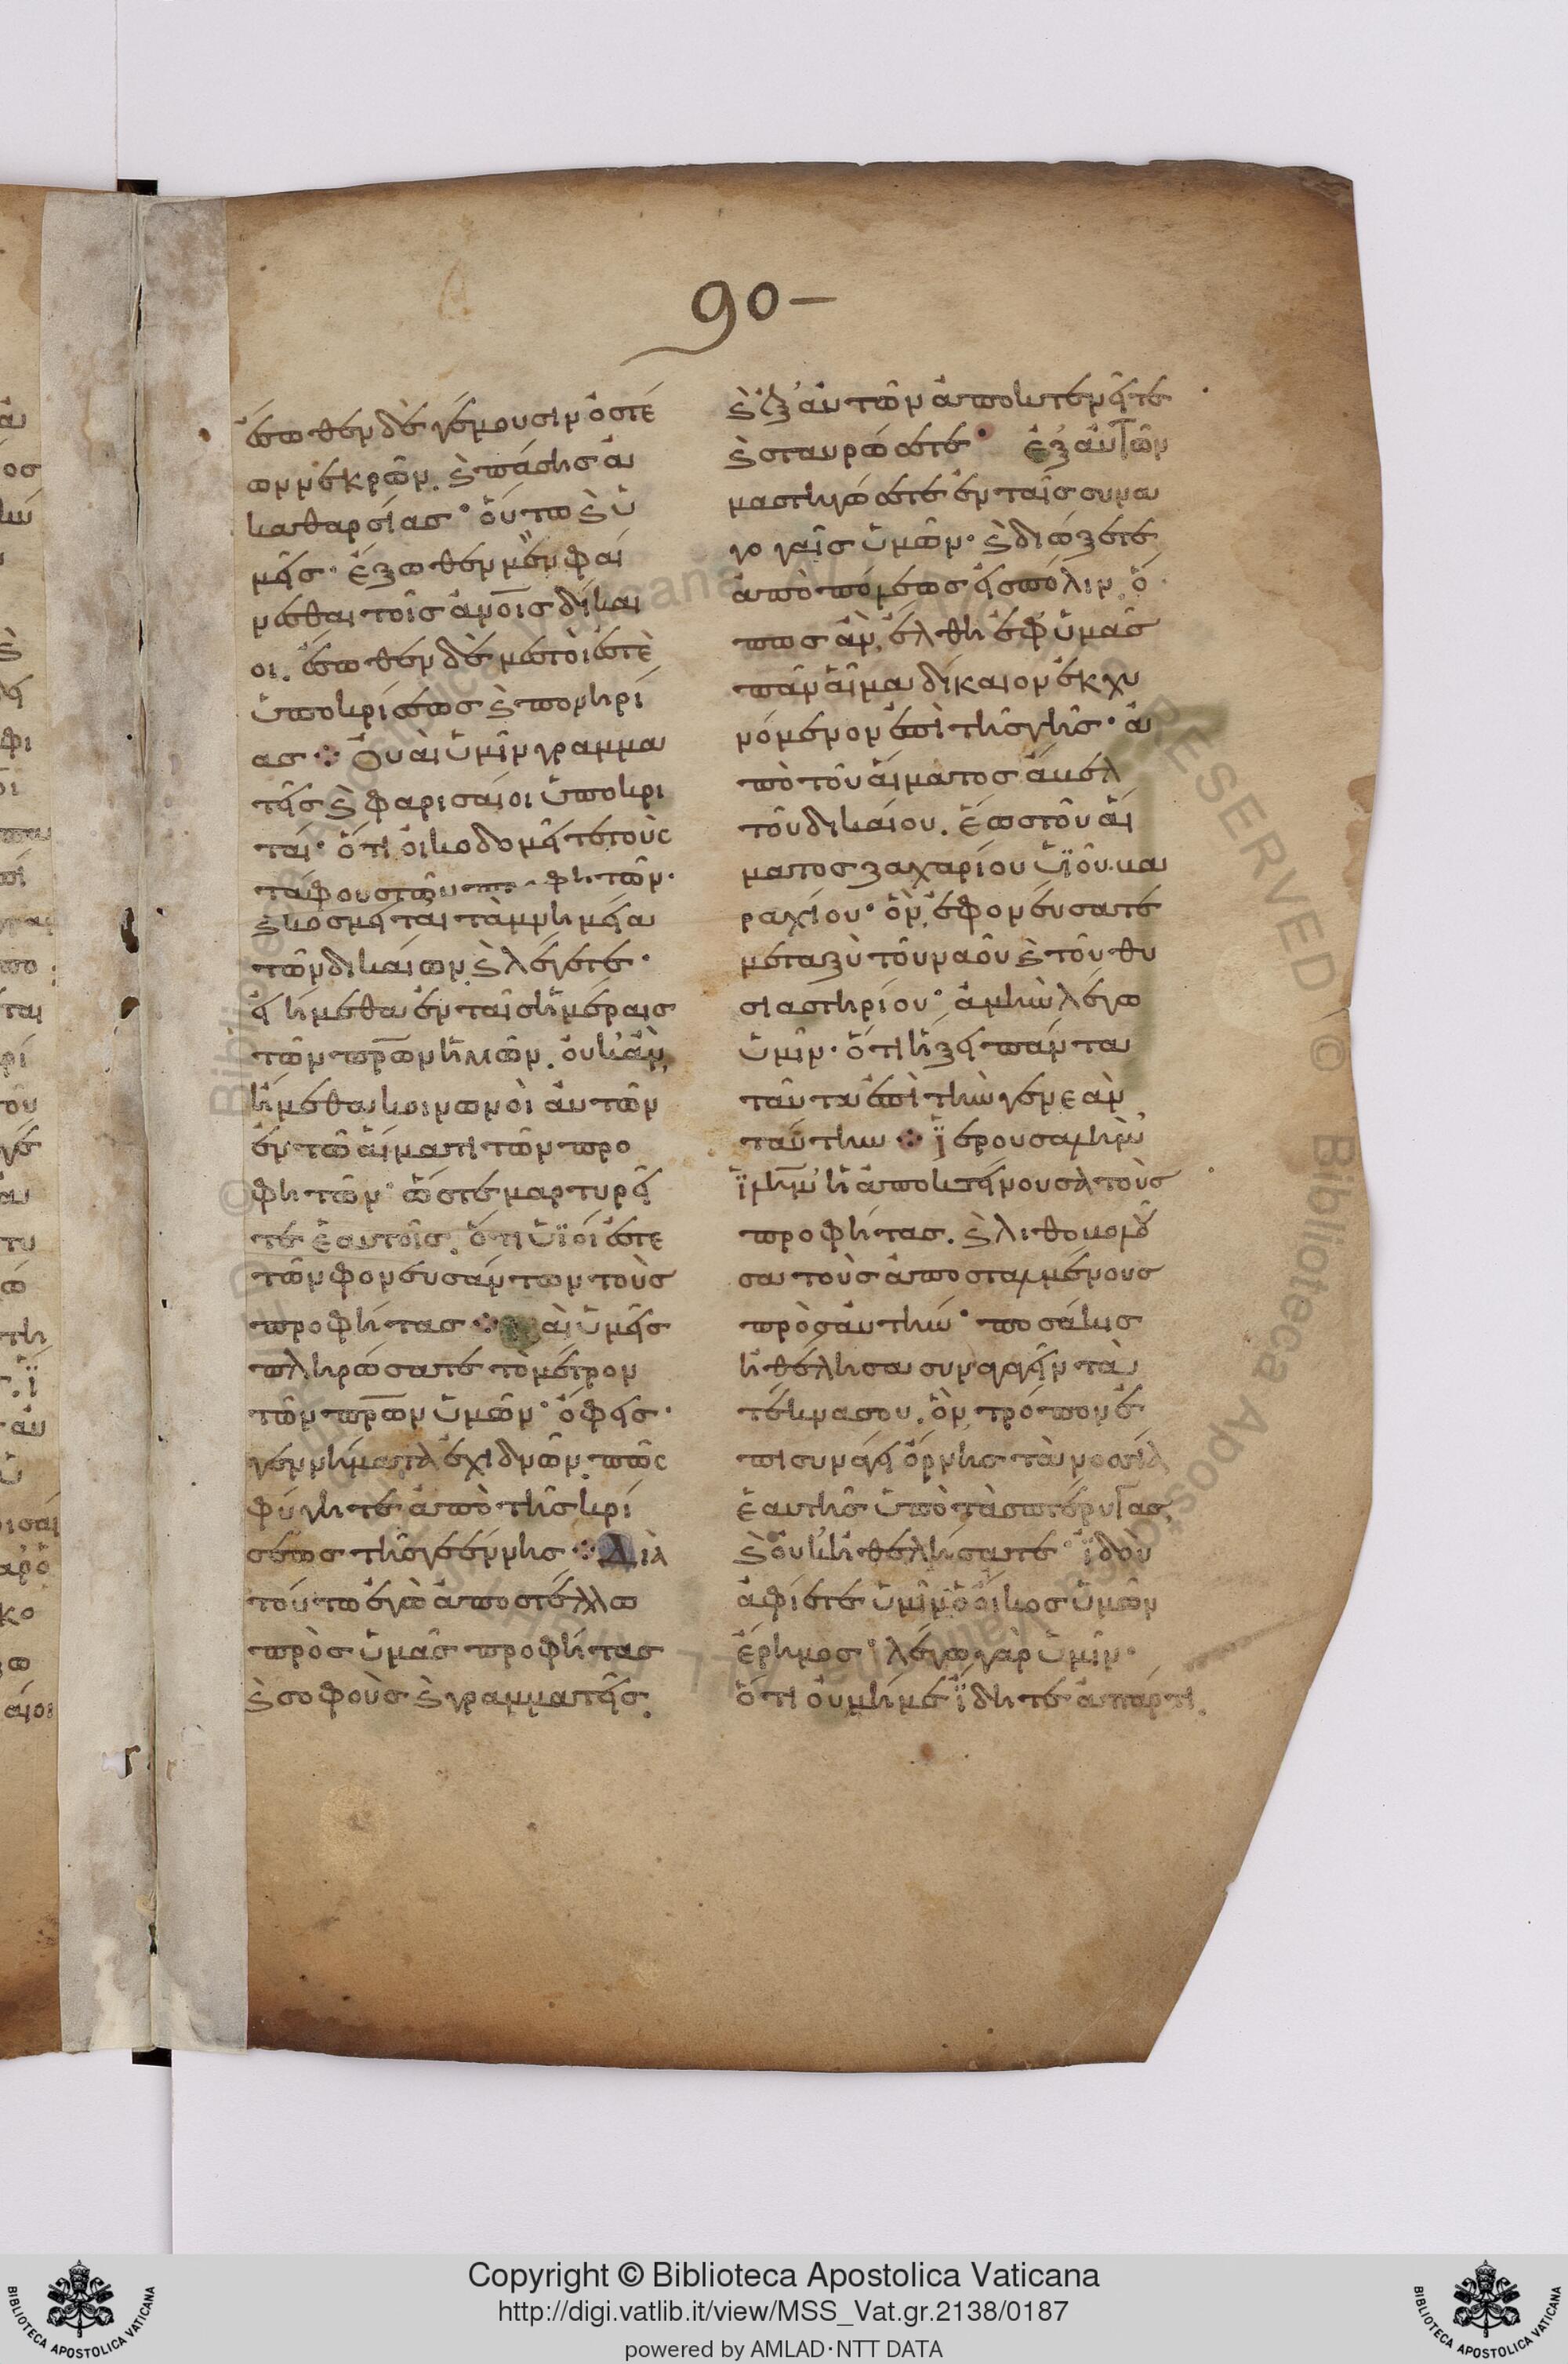 90-
ἔσωθεν δὲ γέμουσιν ὀστέ
ων νεκρῶν. ϗ πάσης ἀ
καθαρσίας· ὅυτω ϗ ὑ
μεῖς· ἔξωθεν μὲν φαί
νεσθαι τοῖς ἀνοῖς δίκαι
οι. ἔσωθεν δὲ μεστοί ἐστὲ
ὑποκρίσεως ϗ πονηρί
ας ⁘ Ὀυαὶ ὑμῖν γραμμα
τεῖς ϗ φαρισαίοι ὑποκρι
ταί· ὅτι ὀικοδομεῖτε τοὺς
τάφους τῶν προφητῶν·
ϗ κοσμεῖται τὰ μνημεῖα
τῶν δικαίων ϗ λέγετε·
εἰ ἤμεθα ἐν ταῖς ἡμέραις
τῶν πρῶν ἡμῶν. ὀυκ ἂν
ἤμεθα κοινωνοὶ ἀυτῶν
ἐν τῶ ἅιματι τῶν προ
φητῶν· ὥστε μαρτυρεῖ
τε ἑαυτοῖς. ὅτι ὑϊοί ἐστε
τῶν φονευσάντων τοὺς
προφήτας ⁘ αὶ ὑμεῖς
πληρώσατε τὸ μέτρον
τῶν πρῶν ὑμῶν· ὄφεις·
γεννήματα ἐχιδνῶν. πῶς
φύγητε ἀπὸ τῆς κρί
σεως τῆς γεέννης ⁘ Διὰ
τούτο ἐγὼ ἀποστέλλω
πρὸς ὑμᾶς προφήτας
ϗ σοφοὺς ϗ γραμματεῖς.
ϗ ἐξ ἀυτῶν ἀποκτενεῖτε
ϗ σταυρώσετε· ἐξ ἀυτῶν
μαστιγώσετε ἐν ταῖς συνα
γωγαῖς ὑμῶν· ϗ διώξετε
ἀπὸ πόλεως εἰς πόλιν. ὅ
πως ἂν ἔλθη ἐφ ὑμᾶς
πᾶν ἅιμα δίκαιον ἐκχυ
νόμενον ἐπὶ τῆς γῆς· ἀ
πὸ τοῦ ἅιματος ἄβελ
τοῦ δικαίου. ἕως τοῦ ἅι
ματος ζαχαρίου ὑϊοῦ βα
ραχίου· ὃν ἐφονέυσατε
μεταξὺ τοῦ ναοῦ ϗ τοῦ θυ
σιαστηρίου· ἀμὴν λέγω
ὑμῖν· ὅτι ἥξει πάντα
ταῦτα ἐπὶ τὴν γενεὰν
ταύτην ⁘ ϊερουσαλὴμ
ϊλημ ἡ ἀποκτείνουσα τοὺς
προφήτας. ϗ λιθοβολοῦ
σα τοὺς ἀποσταλμένους
πρὸς ἀυτήν· ποσάκις
ἠθέλησα συναγαγεῖν τὰ
τέκνα σου. ὃν τρόπον ἐ
πισυνάγει ὄρνης τὰ νοσία
ἑαυτῆς ὑπὸ τὰς πτέρυγας
ϗ ὀυκ ἠθελήσατε· ϊδοὺ
ἀφίετε ὑμῖν ὁ ὀίκος ὑμῶν
ἔρημος· λέγω γὰρ ὑμῖν·
ὅτι ὀυ μή με ϊδητε ἀπάρτι.
Copyright © Biblioteca Apostolica Vaticana
http://digi.vatlib.it/view/MSS_Vat.gr.2138/0187
powered by AMLAD·NTT DATA
BIBLIOTECA APOSTOLICA VATICANA
BIBLIOTECA APOSTOLICA VATICANA